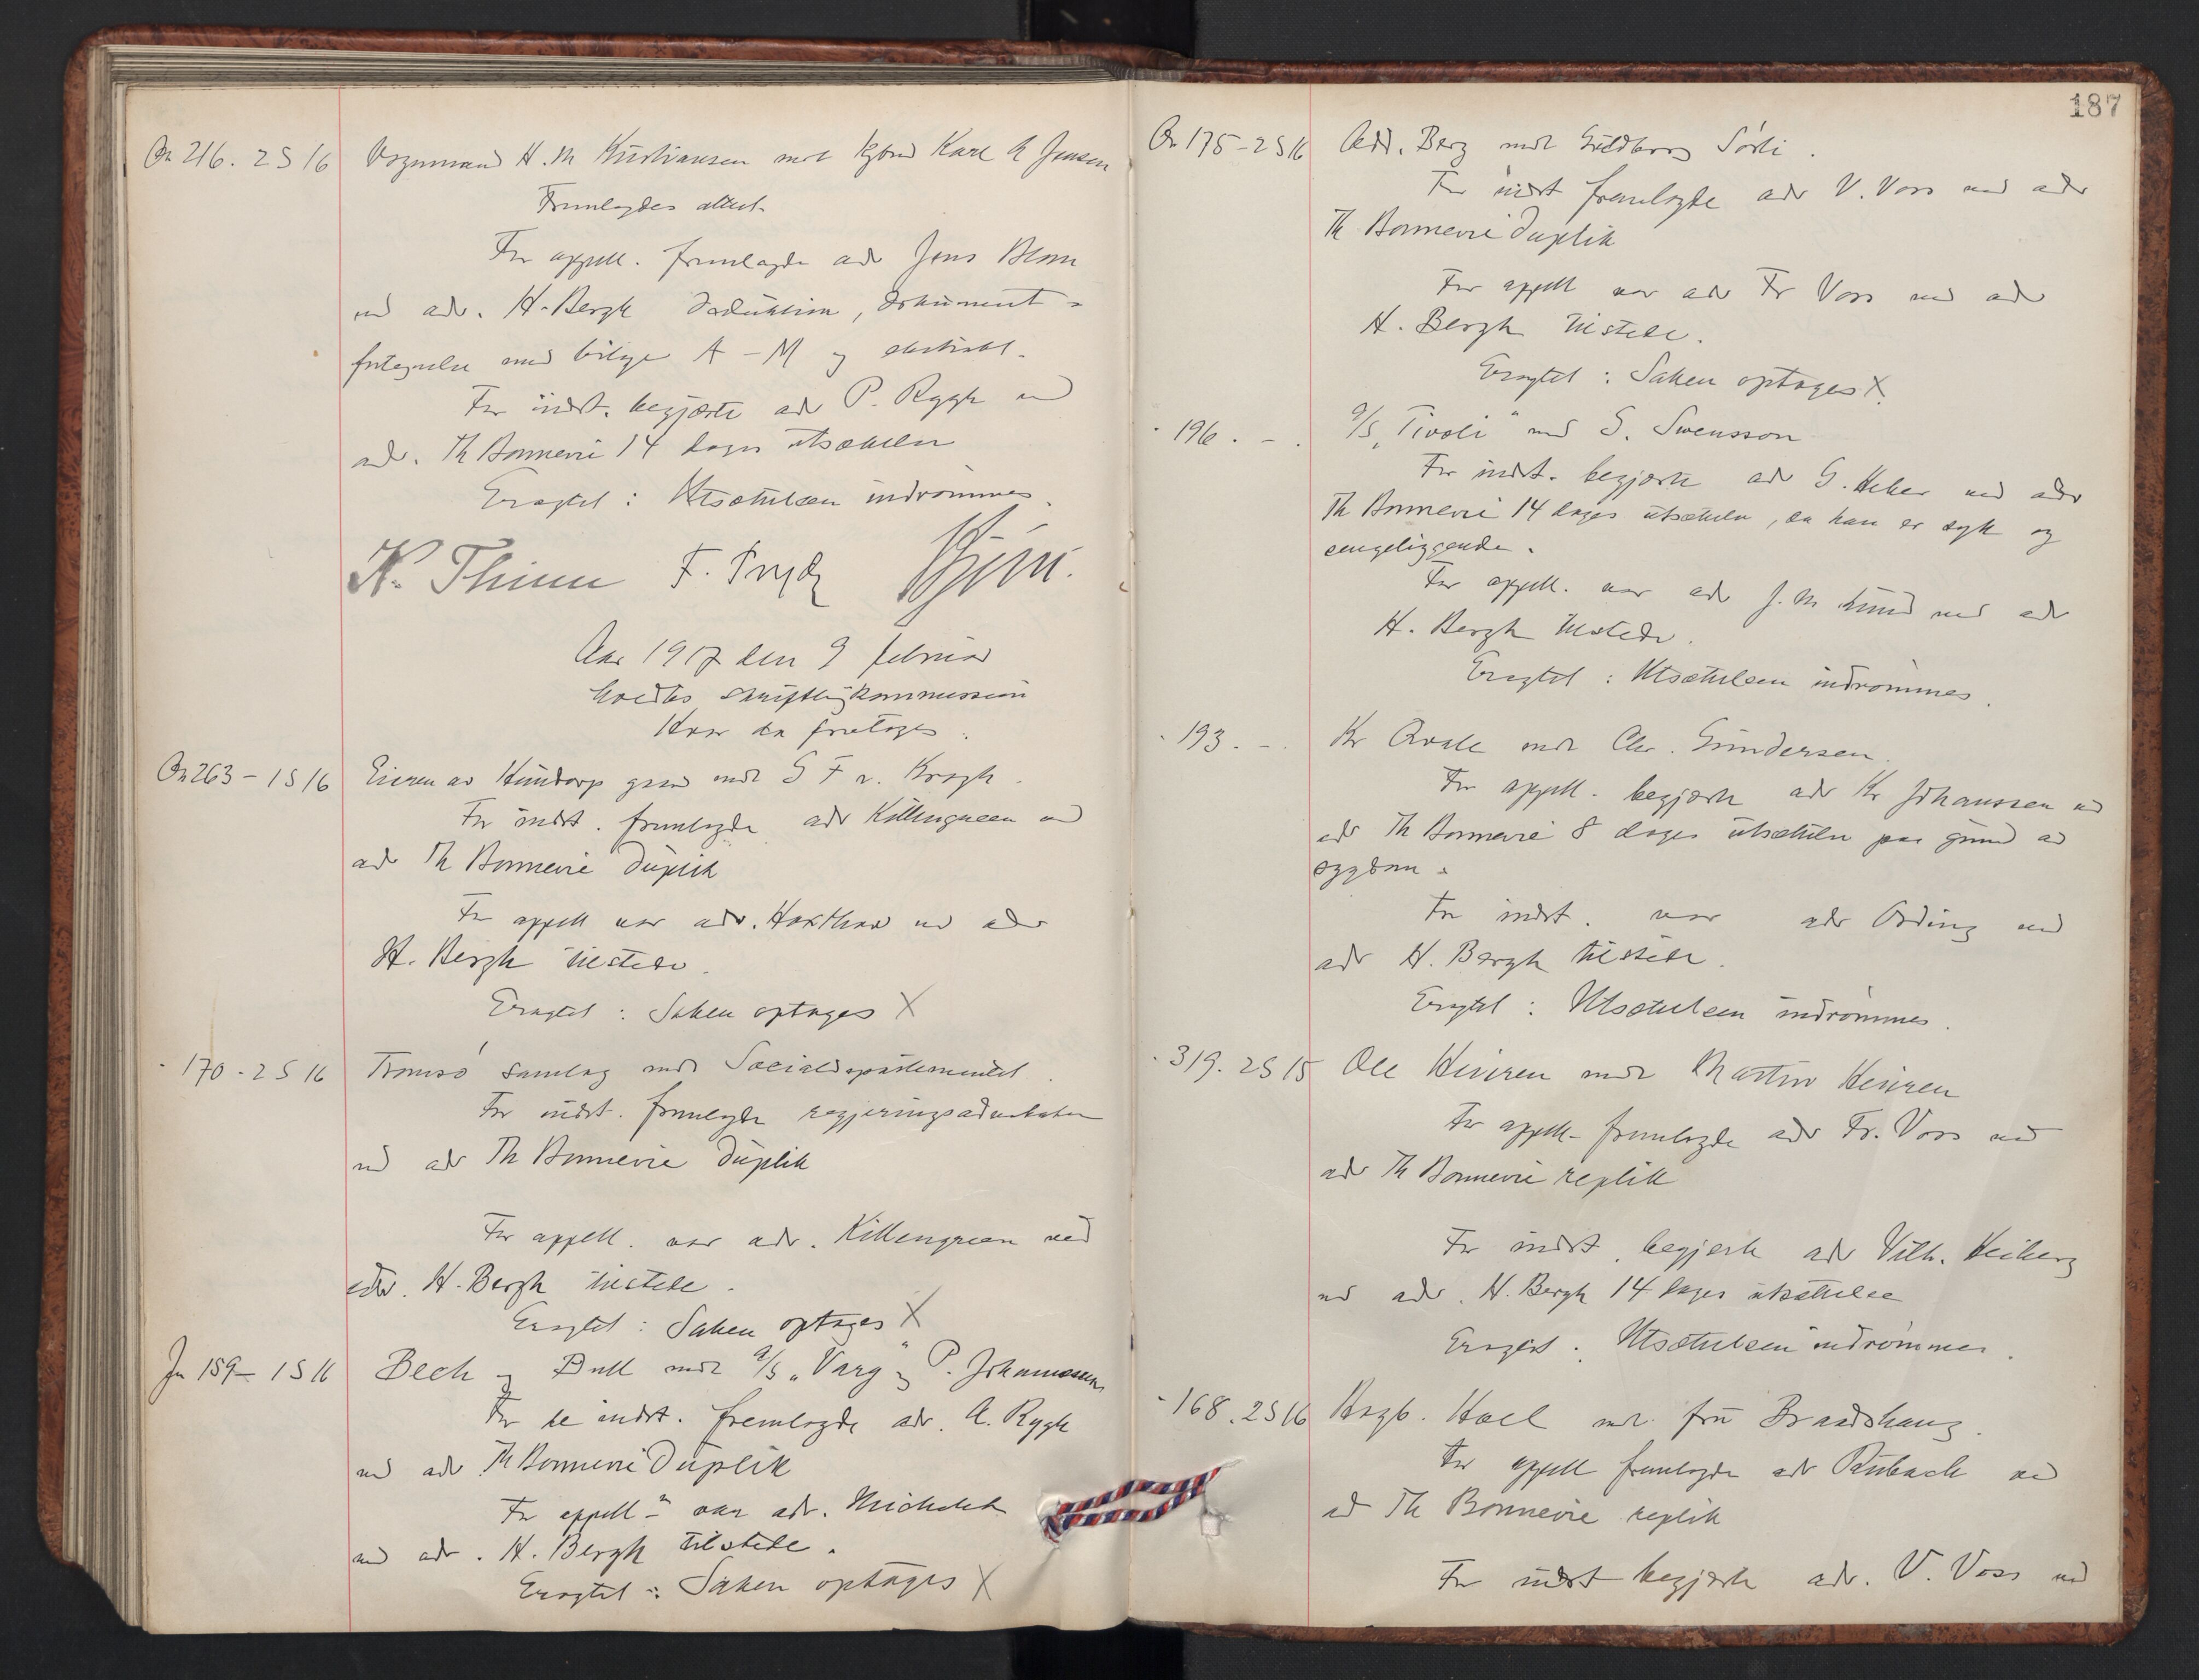 On 216. 2 S 16 Vognmand H. M. Kristiansen mot kjbmd Karl A Jensen
Fremlagdes attest.
For appell. fremlagde adv Jens Blom
ved adv. H. Bergh deduktion, dokument-
fortegnelse med bilage A – M og ekstrakt.
For indst. begjærte adv P. Rygh ved
adv. Th Bonnevie 14 dages utsættelse
Eragtet : Utsættelsen indrømmes.
K. Thinn F. Prydz
Aar 1917 den 9 februar
holdtes skriftlig kommission
Hvor da foretoges :
On 263 – 1 S 16 Eieren av Hundorp gaard mot S F v. Krogh.
For indst. fremlagde adv Killengreen ved
adv Th Bonnevie duplik
For appell var adv. Harthow ved adv
H. Bergh tilstede.
Eragtet : Saken optages X
- 170 - 2 S 16 Tromsø samlag mot Socialdepartementet.
For indst. fremlagde regjeringsadvokaten
ved adv Th Bonnevie duplik
For appell. var adv. Killengreen ved
adv. H. Bergh tilstede.
Eragtet : Saken optages X
Jn 159 – 1 S 16 Bech og Bull mot A/S „Varg" og P. Johannesen
For de indst. fremlagde adv. A. Rygh
ved adv Th Bonnevie duplik
For appell. var adv. Michelet
ved adv. H. Bergh tilstede.
Eragtet : Saken optages X
187
On 175 - 2 S 16 Adv. Berg mot Guldborg Sørli.
For indst fremlagde adv V. Voss ved adv
Th Bonnevie duplik
For appell var adv Fr Voss ved adv
H. Bergh tilstede.
Eragtet : Saken optages X
- 196. - . A/S „Tivoli" mot S. Svensson
For indst. begjærte adv G. Heber ved adv
Th Bonnevie 14 dages utsættelse, da han er syk og
sengeliggende.
For appell. var adv J. M. Lund ved adv
H. Bergh tilstede.
Eragtet : Utsættelsen indrømmes.
- 193. - . Kr Qvale mot Chr. Gundersen.
For appell. begjærte adv Kr Johanssen ved
adv Th Bonnevie 8 dages utsættelse paa grund av
sygdom.
For indst. var adv Ording ved
adv H. Bergh tilstede.
Eragtet : Utsættelsen indrømmes.
- 319. 2 S 15 Ole Heviren mot Martin Heviren
For appell. fremlagde adv Fr. Voss ved
adv Th Bonnevie replik
For indst. begjærte adv Vilh. Heiberg
ved adv. H. Bergh 14 dages utsættelse
Eragtet : Utsættelsen indrømmes.
- 168. 2 S 16 Hagb. Hoel mot fru Brandshaug.
For appell fremlagde adv Rubach ved
adv Th Bonnevie replik
For indst begjærte adv. V. Voss ved